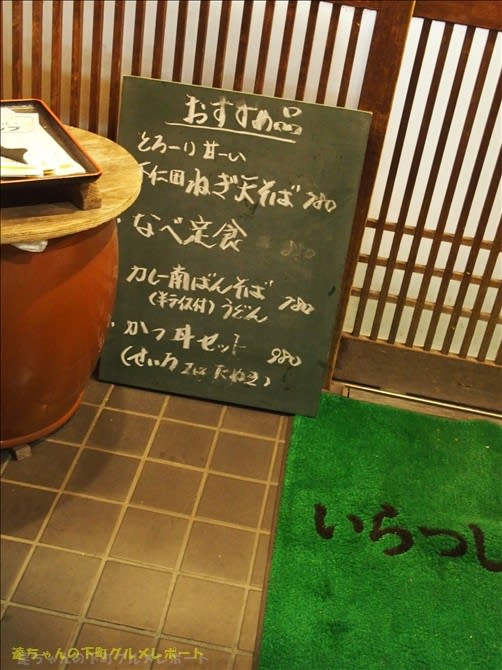 おすすめ品
とろーり甘ーい
下仁田ねぎ天そば 780
・なべ定食
カレー南ばんそば
(半ライス付) うどん 780
・かつ丼セット 980
(せいろ
いらっし
達ちゃんの下町グルメレポート